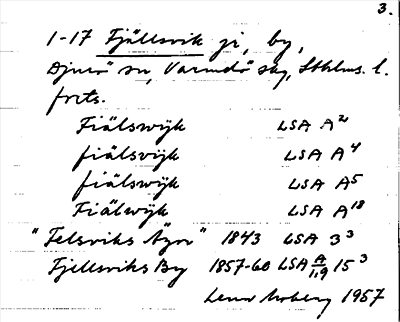 3.
1-17 Fjällsvik ji, by,
Djurö sn, Värmdö skg, Sthlms. l.
forts.
Fiälswijk LSA A²
fiälsvijk LSA A⁴
fiälsvijk LSA A⁵
Fiälwijk LSA A¹⁸
"Felsviks Äger" 1843 LSA 3³
Fjellsviks By 1857-60 LSA A/1,9 15³
Lena Moberg 1957